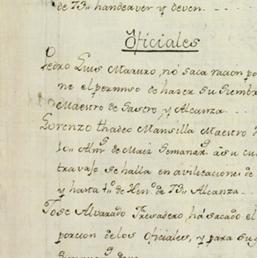 de 73 handeaver y deven.
Oficiales
Pedro Luis Maruxo, nó saca racion por
ne el permiso de haser su siembra
Maestro de Sastre, y Alcanza
Lorenzo thadeo Mansilla Maestro de
Alm.s de Maiz Semanar.s á su cu
travajo se halla en avilitaciones de
y hasta 1.o de Hen.o de 73 Alcanza
Jose Alvarado Texedero há sacado el
porcion de los Oficiales, y para su